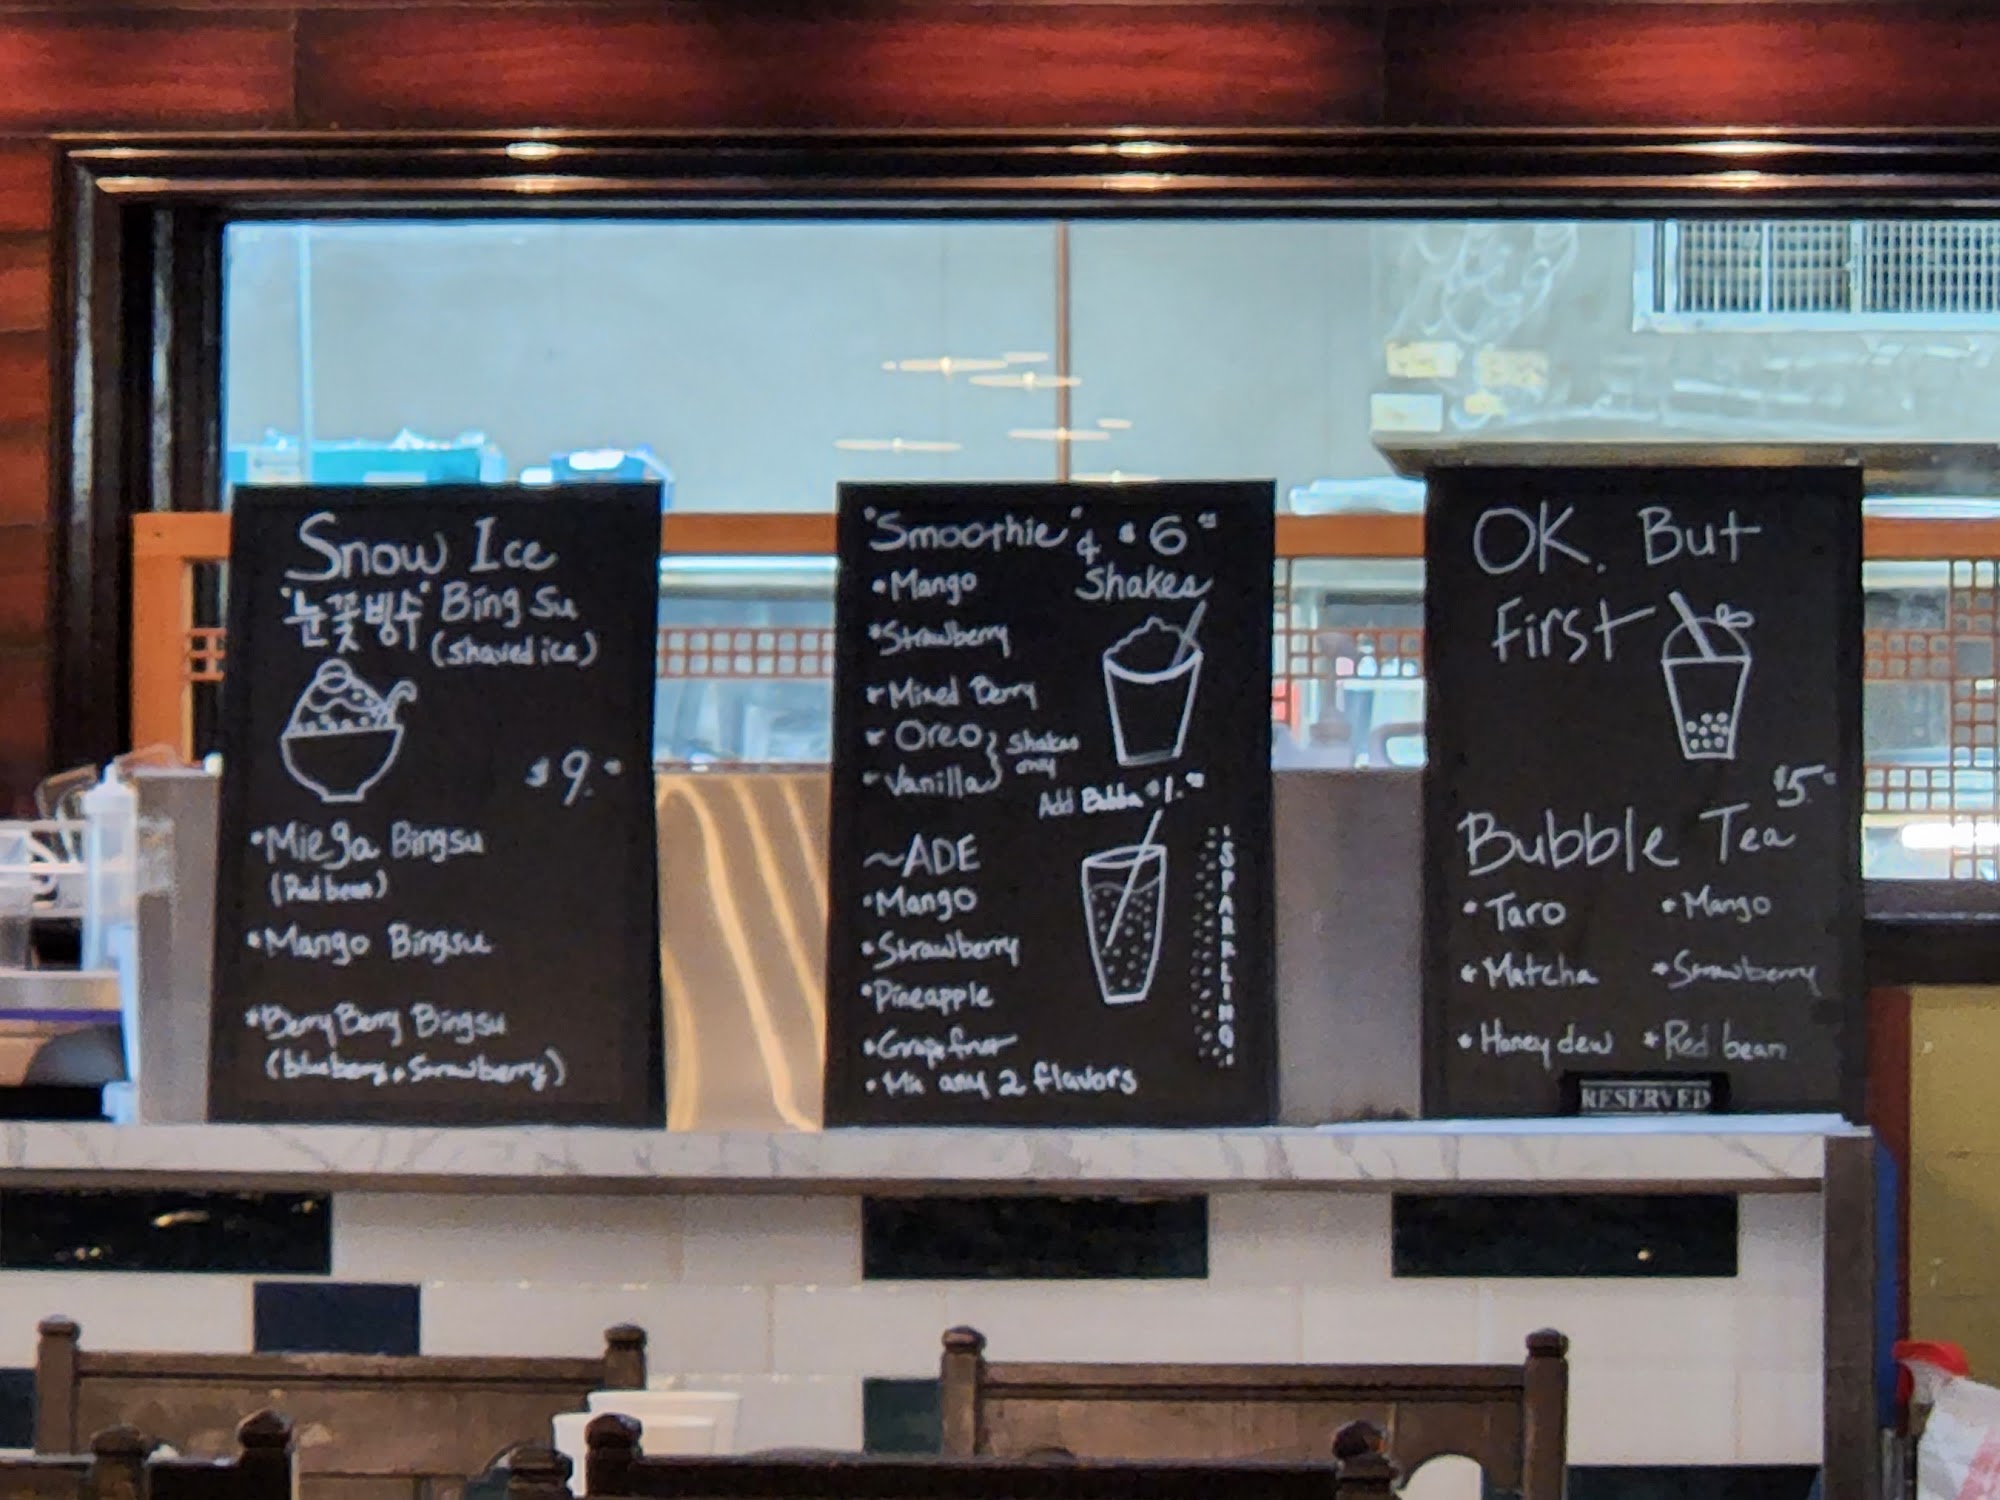 Snow Ice
"눈꽃빙수" Bing Su
(shaved ice)
$9.00
• Miega Bingsu
(Red bean)
• Mango Bingsu
• Berry Berry Bingsu
(blueberry, Strawberry)
"Smoothie" & $6.00
Shakes
• Mango
• Strawberry
• Mixed Berry
• Oreo } Shakes
• Vanilla } only
Add Bubba $1.00
~ADE
• Mango
• Strawberry
• Pineapple
• Grapefruit
• Mix any 2 flavors
SPARKLING
OK. But
First
$5.00
Bubble Tea
• Taro • Mango
• Matcha • Strawberry
• Honeydew • Red bean
RESERVED